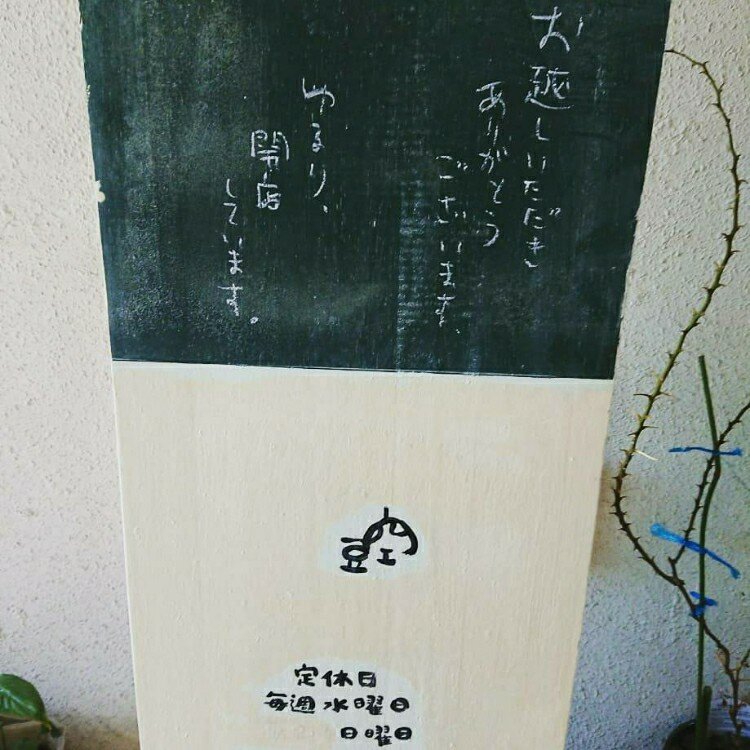 お越しいただき
ありがとう
ございます。
ゆるり、
開店
しています。
定休日
毎週水曜日
日曜日